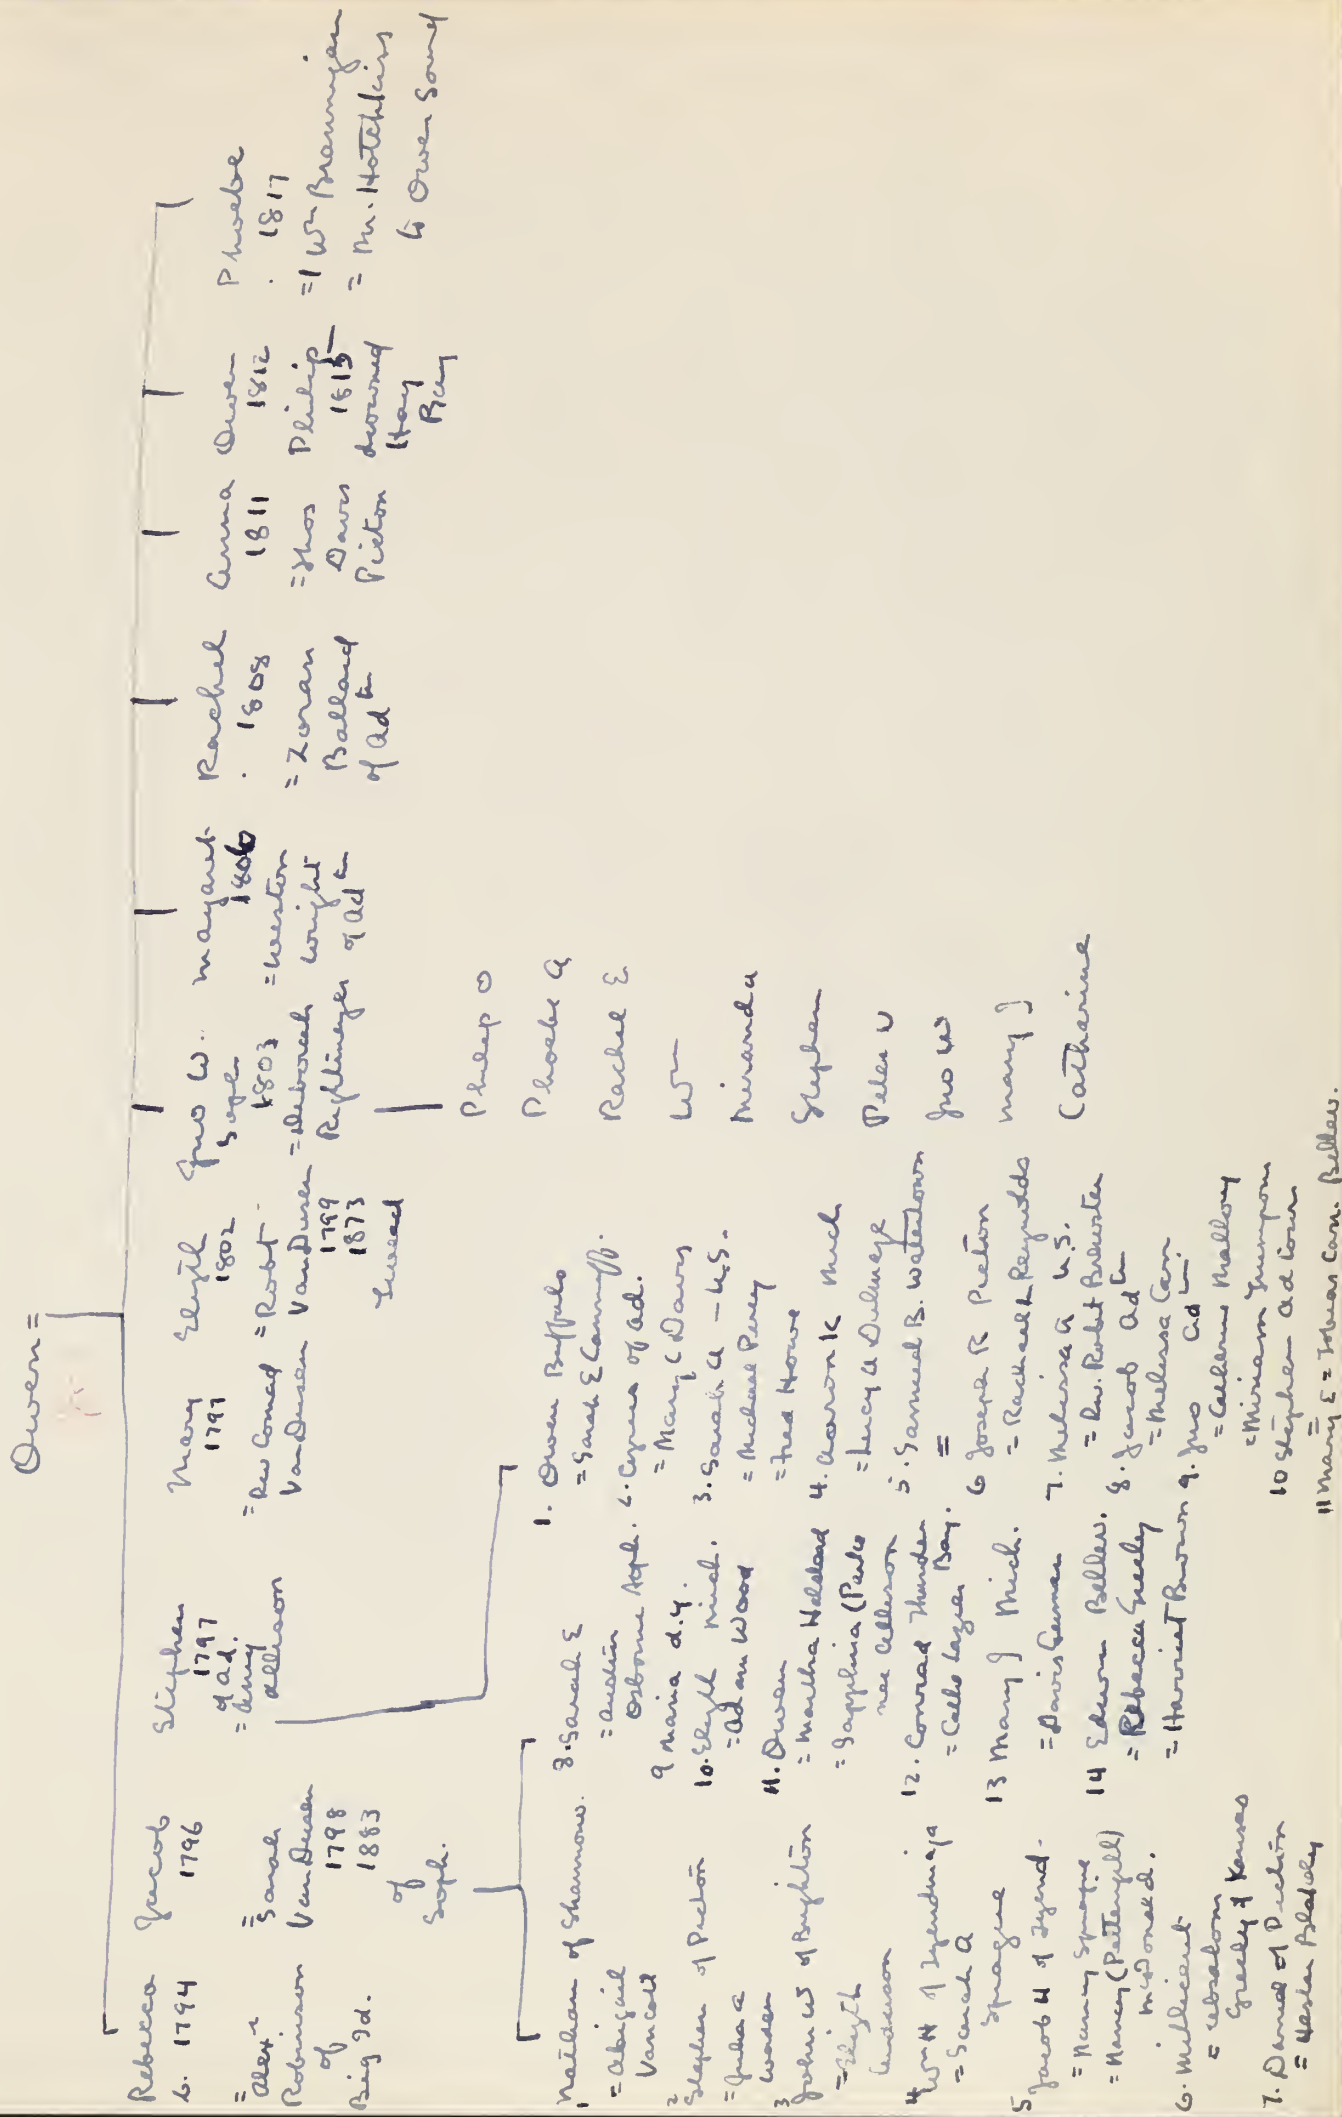 Owen =
Rebecca
b. 1794
= Alexr
Robinson
of
Big Id.
Jacob
1796
=
Sarah
VanDusen
1798
1883
of
Soph.
Stephen
1797
of ad.
= Amy
Allison
Mary
1797
= Rev Conrad
VanDusen
Elizth
1802
= Robt
VanDusen
1799
1873
Tweed
Jno W.
Soph
1803
= Deborah
Margaret
1806
= Weston
Wright
of adtn
Rachel
. 1808
= Loran
Ballard
of adtn
Anna
1811
= Thos
Davis
Picton
Owen
1812
Philip
1815
drowned
Hay
Bay
Phoebe
. 1817
= 1 Wm Brannigan
= Mr. Hotchkiss
to Owen Sound
1 Nathan of Shannonv.
= Abigail
Vancott
2 Stephen of Picton
= Julia A
3 John W of Brighton
= Elizth
Anderson
4 Wm H of Tyendinaga
= Sarah A
Sprague
5 Jacob H of Tyend.
= Nancy Sprague
= Nancy (Pettengill)
McDonald.
6. Millicent
= Absalom
Greely of Kansas
7. Daniel of Picton
= Hester Blakely
8. Sarah E
= Austin
Osborne Soph.
9 Maria d.y.
10. Elizth Mich.
= Adam Wood
11. Owen
= Martha
= Sapphina (Parks
nee Allison
12. Conrad
= Bay.
13 Mary J Mich.
= Davis
14 Edwin Bellev.
= Rebecca Greely
= Harriet Brown
1. Owen Buffalo
= Sarah E Canniff.
2. Cyrus of ad.
= Mary C Davis
3. Sarah A – U.S.
= Michael Perey
= Fred Howe
4. Aaron K Mich
= Lucy A Dulmage
5. Samuel B. Watertown
=
6 Joseph R Picton
= Rachael L Reynolds
7. Melissa A U.S.
= Rev. Robt Brewster
8. Jacob adtn
= Melissa Carr
9. Jno adtn.
= Catherine Mallory
= Miriam Trumpour
10 Stephen ad town
=
11 Mary E = Tobias Can. Bellev.
Philip O
Phoebe A
Rachel E
Wm
Miranda
Stephen
Peter V
Jno W
Mary J
Catharine